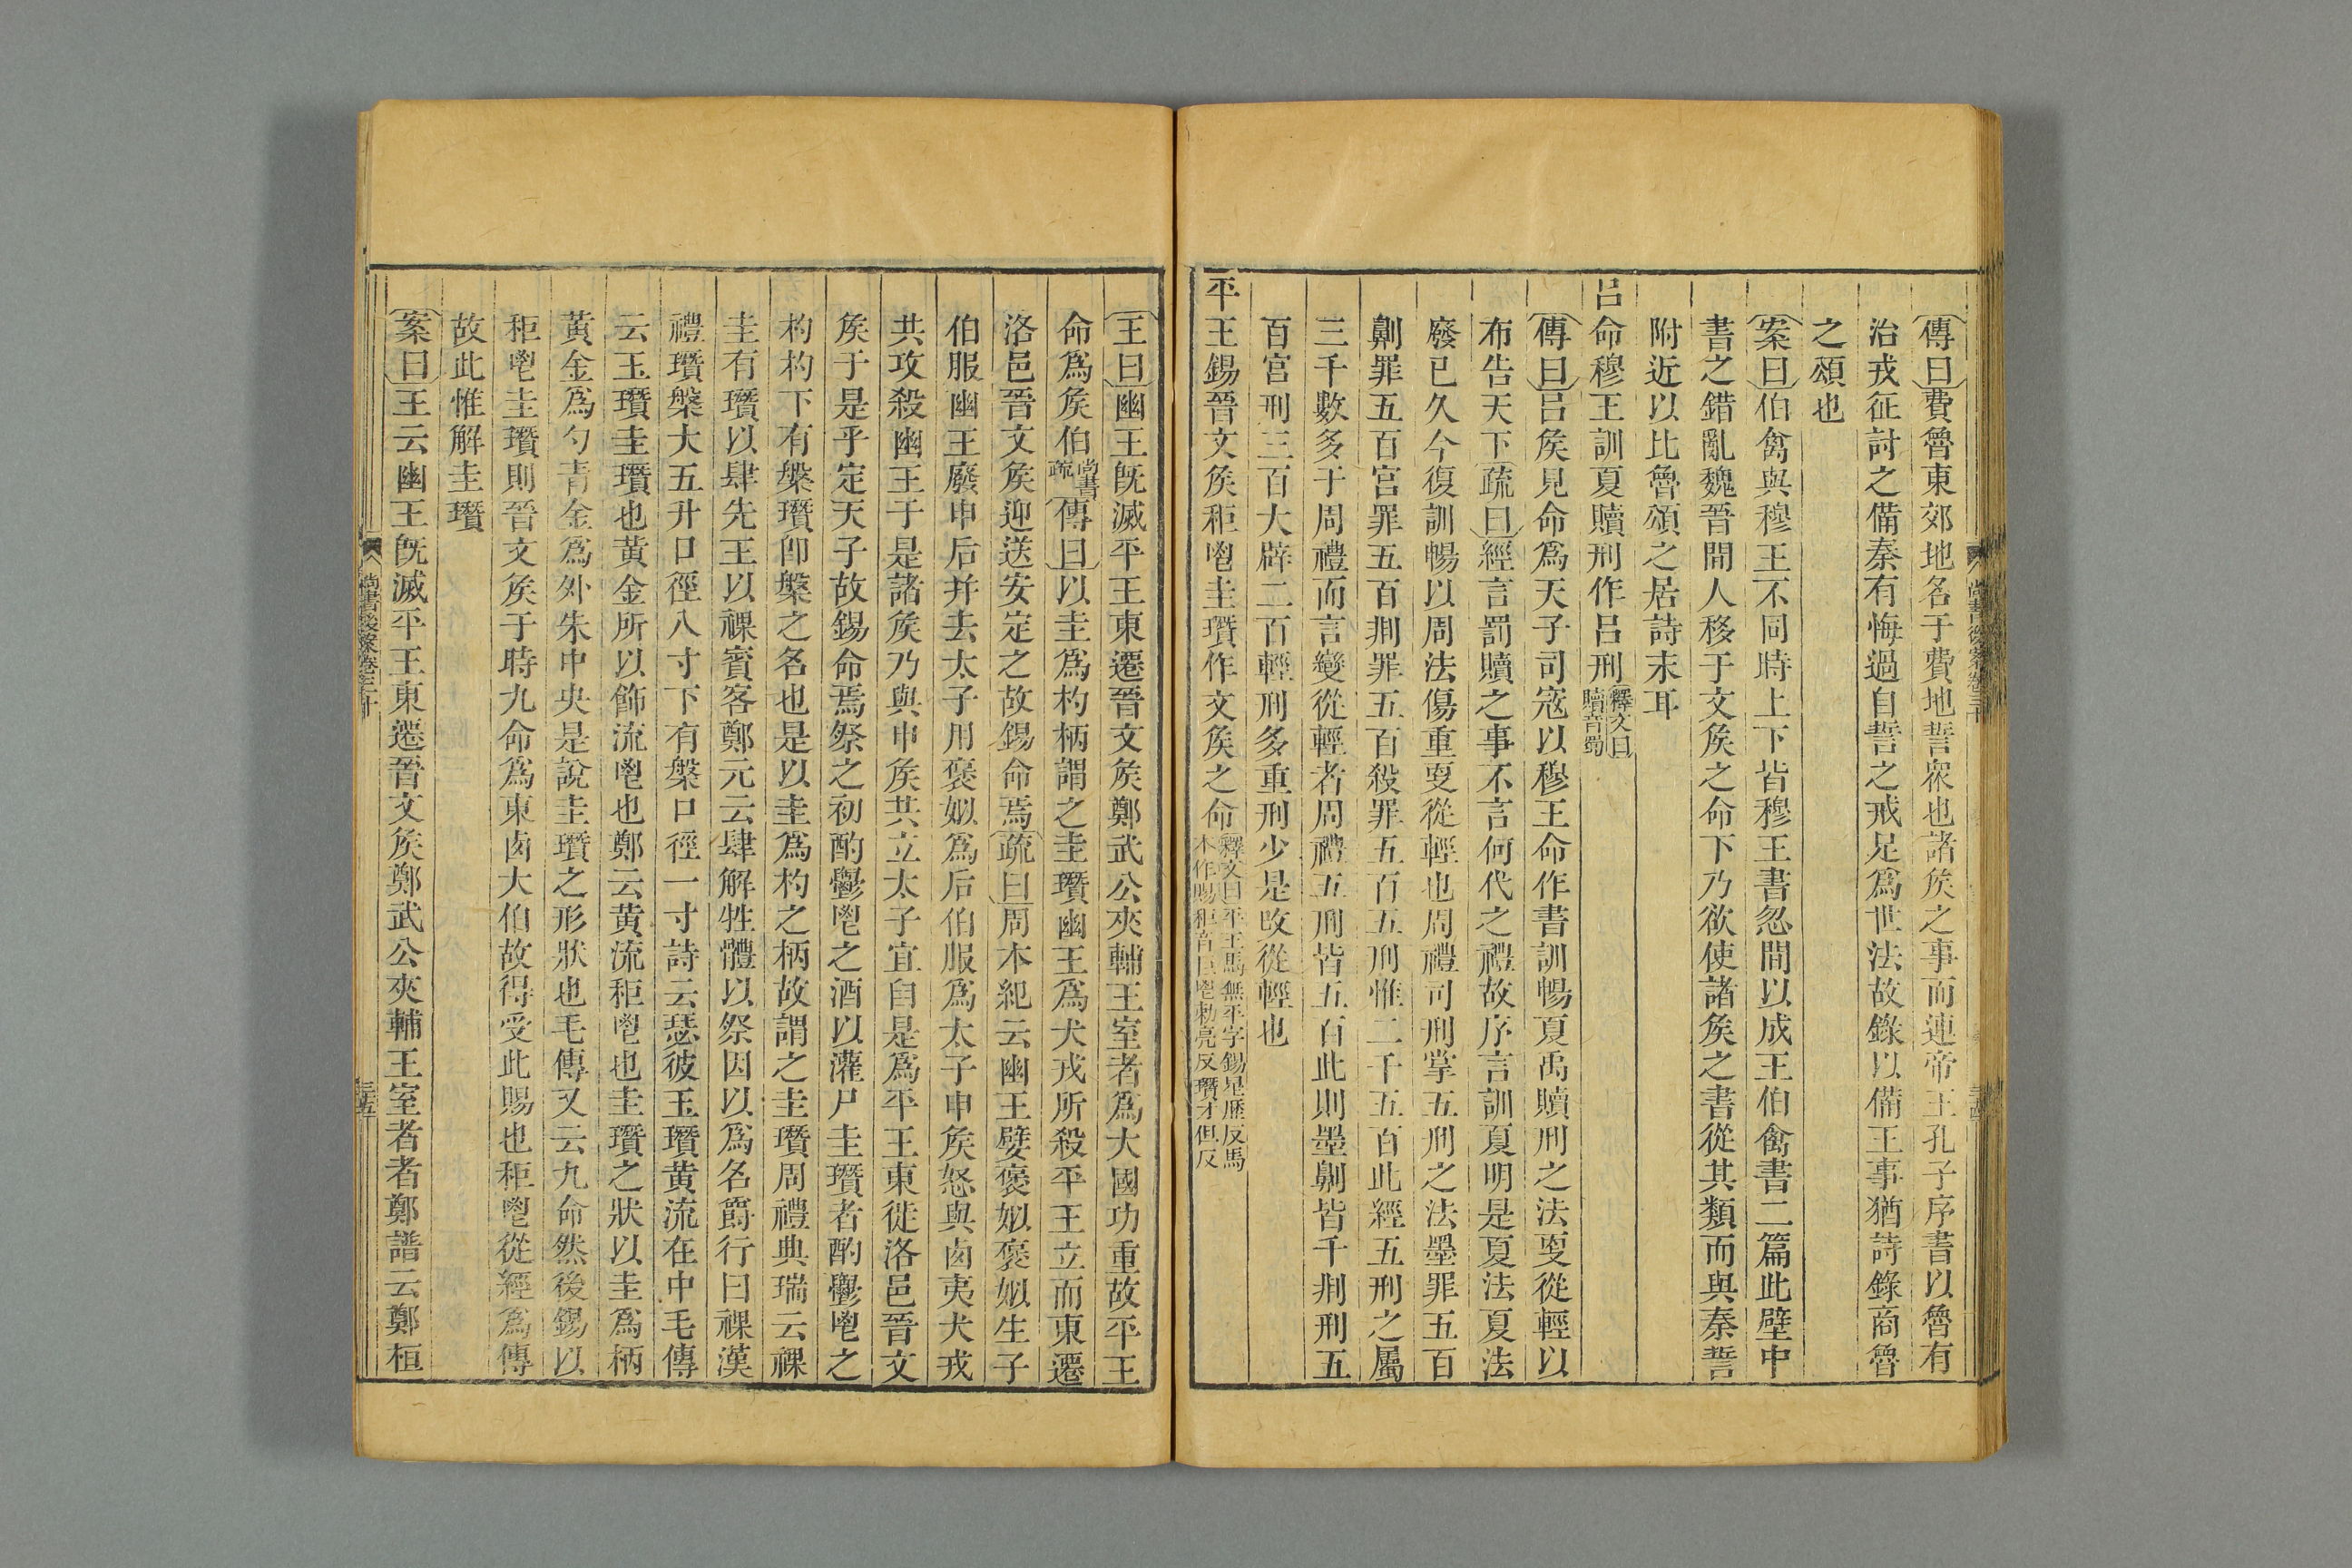 傳曰費魯東郊地名于費地誓衆也諸矦之事而連帝王孔子序書以魯有
治戎征討之備秦有悔過自誓之戒足爲世法故錄以備王事猶詩錄商魯
之頌也
案曰伯禽與穆王不同時上下皆穆王書忽間以成王伯禽書二篇此壁中
書之錯亂魏晉間人移于文矦之命下乃欲使諸矦之書從其類而與秦誓
附近以比魯頌之居詩末耳
呂命穆王訓夏贖刑作呂刑釋文曰贖音蜀
傳曰呂矦見命爲天子司寇以穆王命作書訓暢夏禹贖刑之法㪅從輕以
布告天下疏曰經言罰贖之事不言何代之禮故序言訓夏明是夏法夏法
廢已久今復訓暢以周法傷重㪅從輕也周禮司刑掌五刑之法墨罪五百
劓罪五百宮罪五百剕罪五百殺罪五百五刑惟二千五百此經五刑之屬
三千數多于周禮而言變從輕者周禮五刑皆五百此則墨劓皆千剕刑五
百宮刑三百大辟二百輕刑多重刑少是改從輕也
平王錫晉文矦秬鬯圭瓚作文矦之命釋文曰平王馬無平字錫星歷反馬本作賜秬音巨鬯勑亮反瓚才但反
王曰幽王旣滅平王東遷晉文矦鄭武公夾輔王室者爲大國功重故平王
命爲矦伯尚書疏傳曰以圭爲杓柄謂之圭瓚幽王爲犬戎所殺平王立而東遷
洛邑晉文矦迎送安定之故錫命焉疏曰周本紀云幽王嬖褒姒褒姒生子
伯服幽王廢申后幷去太子用褒姒爲后伯服爲太子申矦怒與㢴夷犬戎
共攻殺幽王于是諸矦乃與申矦共立太子宜臼是爲平王東徙洛邑晉文
矦于是乎定天子故錫命焉祭之初酌鬱鬯之酒以灌尸圭瓚者酌鬱鬯之
杓杓下有槃瓚卽槃之名也是以圭爲杓之柄故謂之圭瓚周禮典瑞云祼
圭有瓚以肆先王以祼賓客鄭元云肆解牲體以祭因以爲名爵行曰祼漢
禮瓚槃大五升口徑八寸下有槃口徑一寸詩云瑟彼玉瓚黃流在中毛傳
云玉瓚圭瓚也黃金所以飾流鬯也鄭云黃流秬鬯也圭瓚之狀以圭爲柄
黃金爲勺青金爲外朱中央是說圭瓚之形狀也毛傳又云九命然後錫以
秬鬯圭瓚則晉文矦于時九命爲東㢴大伯故得受此賜也秬鬯從經爲傳
故此惟解圭瓚
案曰王云幽王旣滅平王東遷晉文矦鄭武公夾輔王室者者鄭譜云鄭桓
尚書後案卷三十
尚書後案卷三十